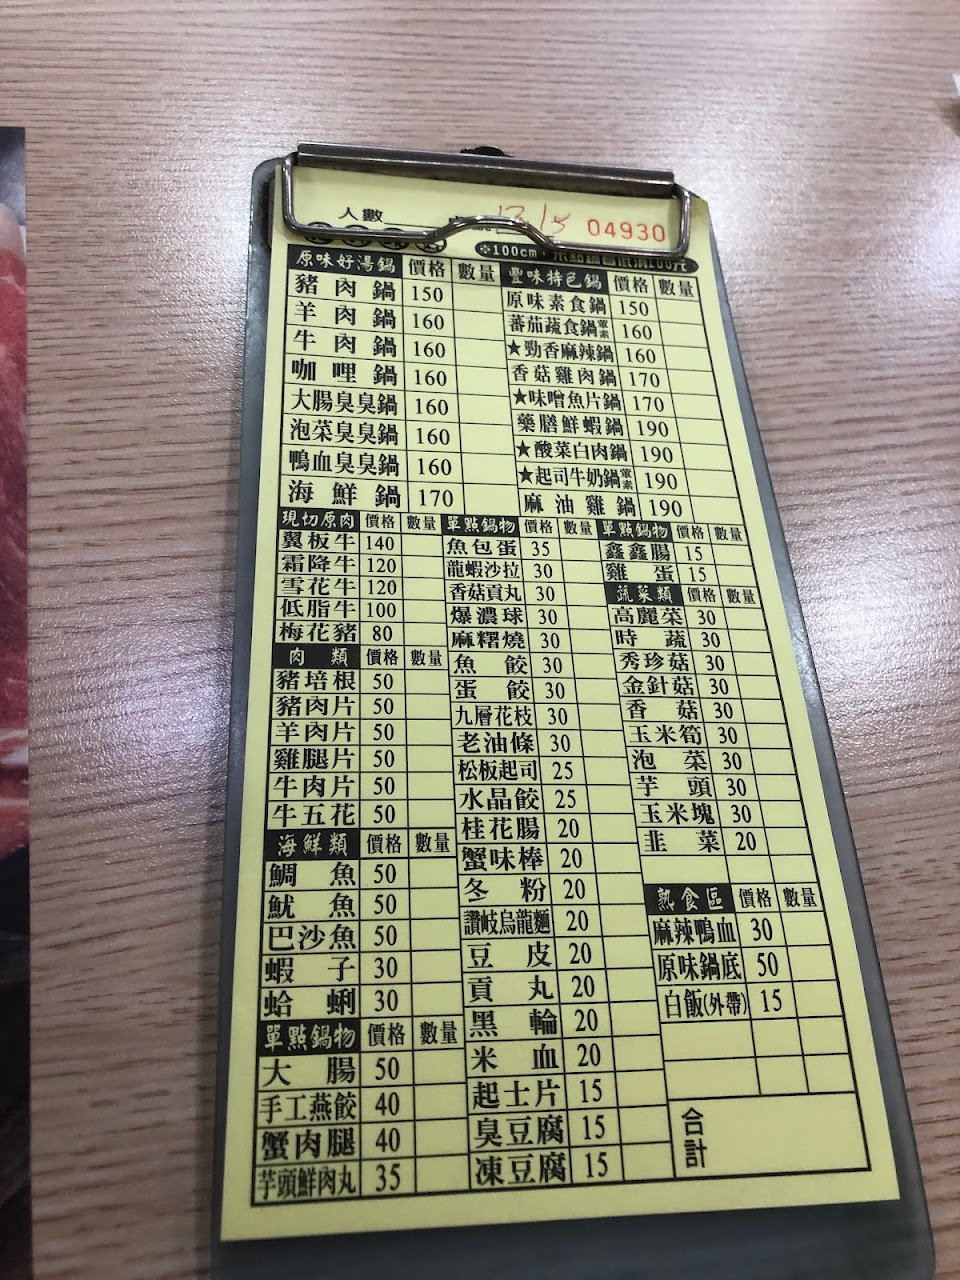 人數
04930
※100cm
原味好湯鍋 價格 數量
豬肉鍋 150
羊肉鍋 160
牛肉鍋 160
咖哩鍋 160
大腸臭臭鍋 160
泡菜臭臭鍋 160
鴨血臭臭鍋 160
海鮮鍋 170
豐味特色鍋 價格 數量
原味素食鍋 150
蕃茄蔬食鍋 葷素 160
★勁香麻辣鍋 160
香菇雞肉鍋 170
★味噌魚片鍋 170
藥膳鮮蝦鍋 190
★酸菜白肉鍋 190
★起司牛奶鍋 葷素 190
麻油雞鍋 190
現切原肉 價格 數量
翼板牛 140
霜降牛 120
雪花牛 120
低脂牛 100
梅花豬 80
肉類 價格 數量
豬培根 50
豬肉片 50
羊肉片 50
雞腿片 50
牛肉片 50
牛五花 50
海鮮類 價格 數量
鯛魚 50
魷魚 50
巴沙魚 50
蝦子 30
蛤蜊 30
單點鍋物 價格 數量
大腸 50
手工燕餃 40
蟹肉腿 40
芋頭鮮肉丸 35
單點鍋物 價格 數量
魚包蛋 35
龍蝦沙拉 30
香菇貢丸 30
爆濃球 30
麻糬燒 30
魚餃 30
蛋餃 30
九層花枝 30
老油條 30
松板起司 25
水晶餃 25
桂花腸 20
蟹味棒 20
冬粉 20
讚岐烏龍麵 20
豆皮 20
貢丸 20
黑輪 20
米血 20
起士片 15
臭豆腐 15
凍豆腐 15
單點鍋物 價格 數量
鑫鑫腸 15
雞蛋 15
蔬菜類 價格 數量
高麗菜 30
時蔬 30
秀珍菇 30
金針菇 30
香菇 30
玉米筍 30
泡菜 30
芋頭 30
玉米塊 30
韭菜 20
熟食區 價格 數量
麻辣鴨血 30
原味鍋底 50
白飯(外帶) 15
合計